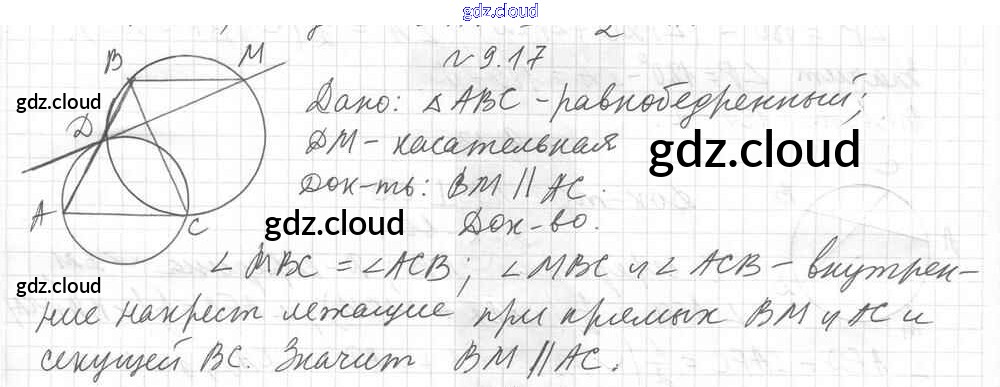 gdz.cloud
№ 9.17
B M
gdz.cloud
Дано: △ABC - равнобедренный;
D
DM - касательная
gdz.cloud
Док-ть: BM || AC.
A C
gdz.cloud
Док-во.
gdz.cloud
∠MBC = ∠ACB; ∠MBC и ∠ACB - внутрен-
ние накрест лежащие при прямых BM и AC и
секущей BC. Значит BM || AC.